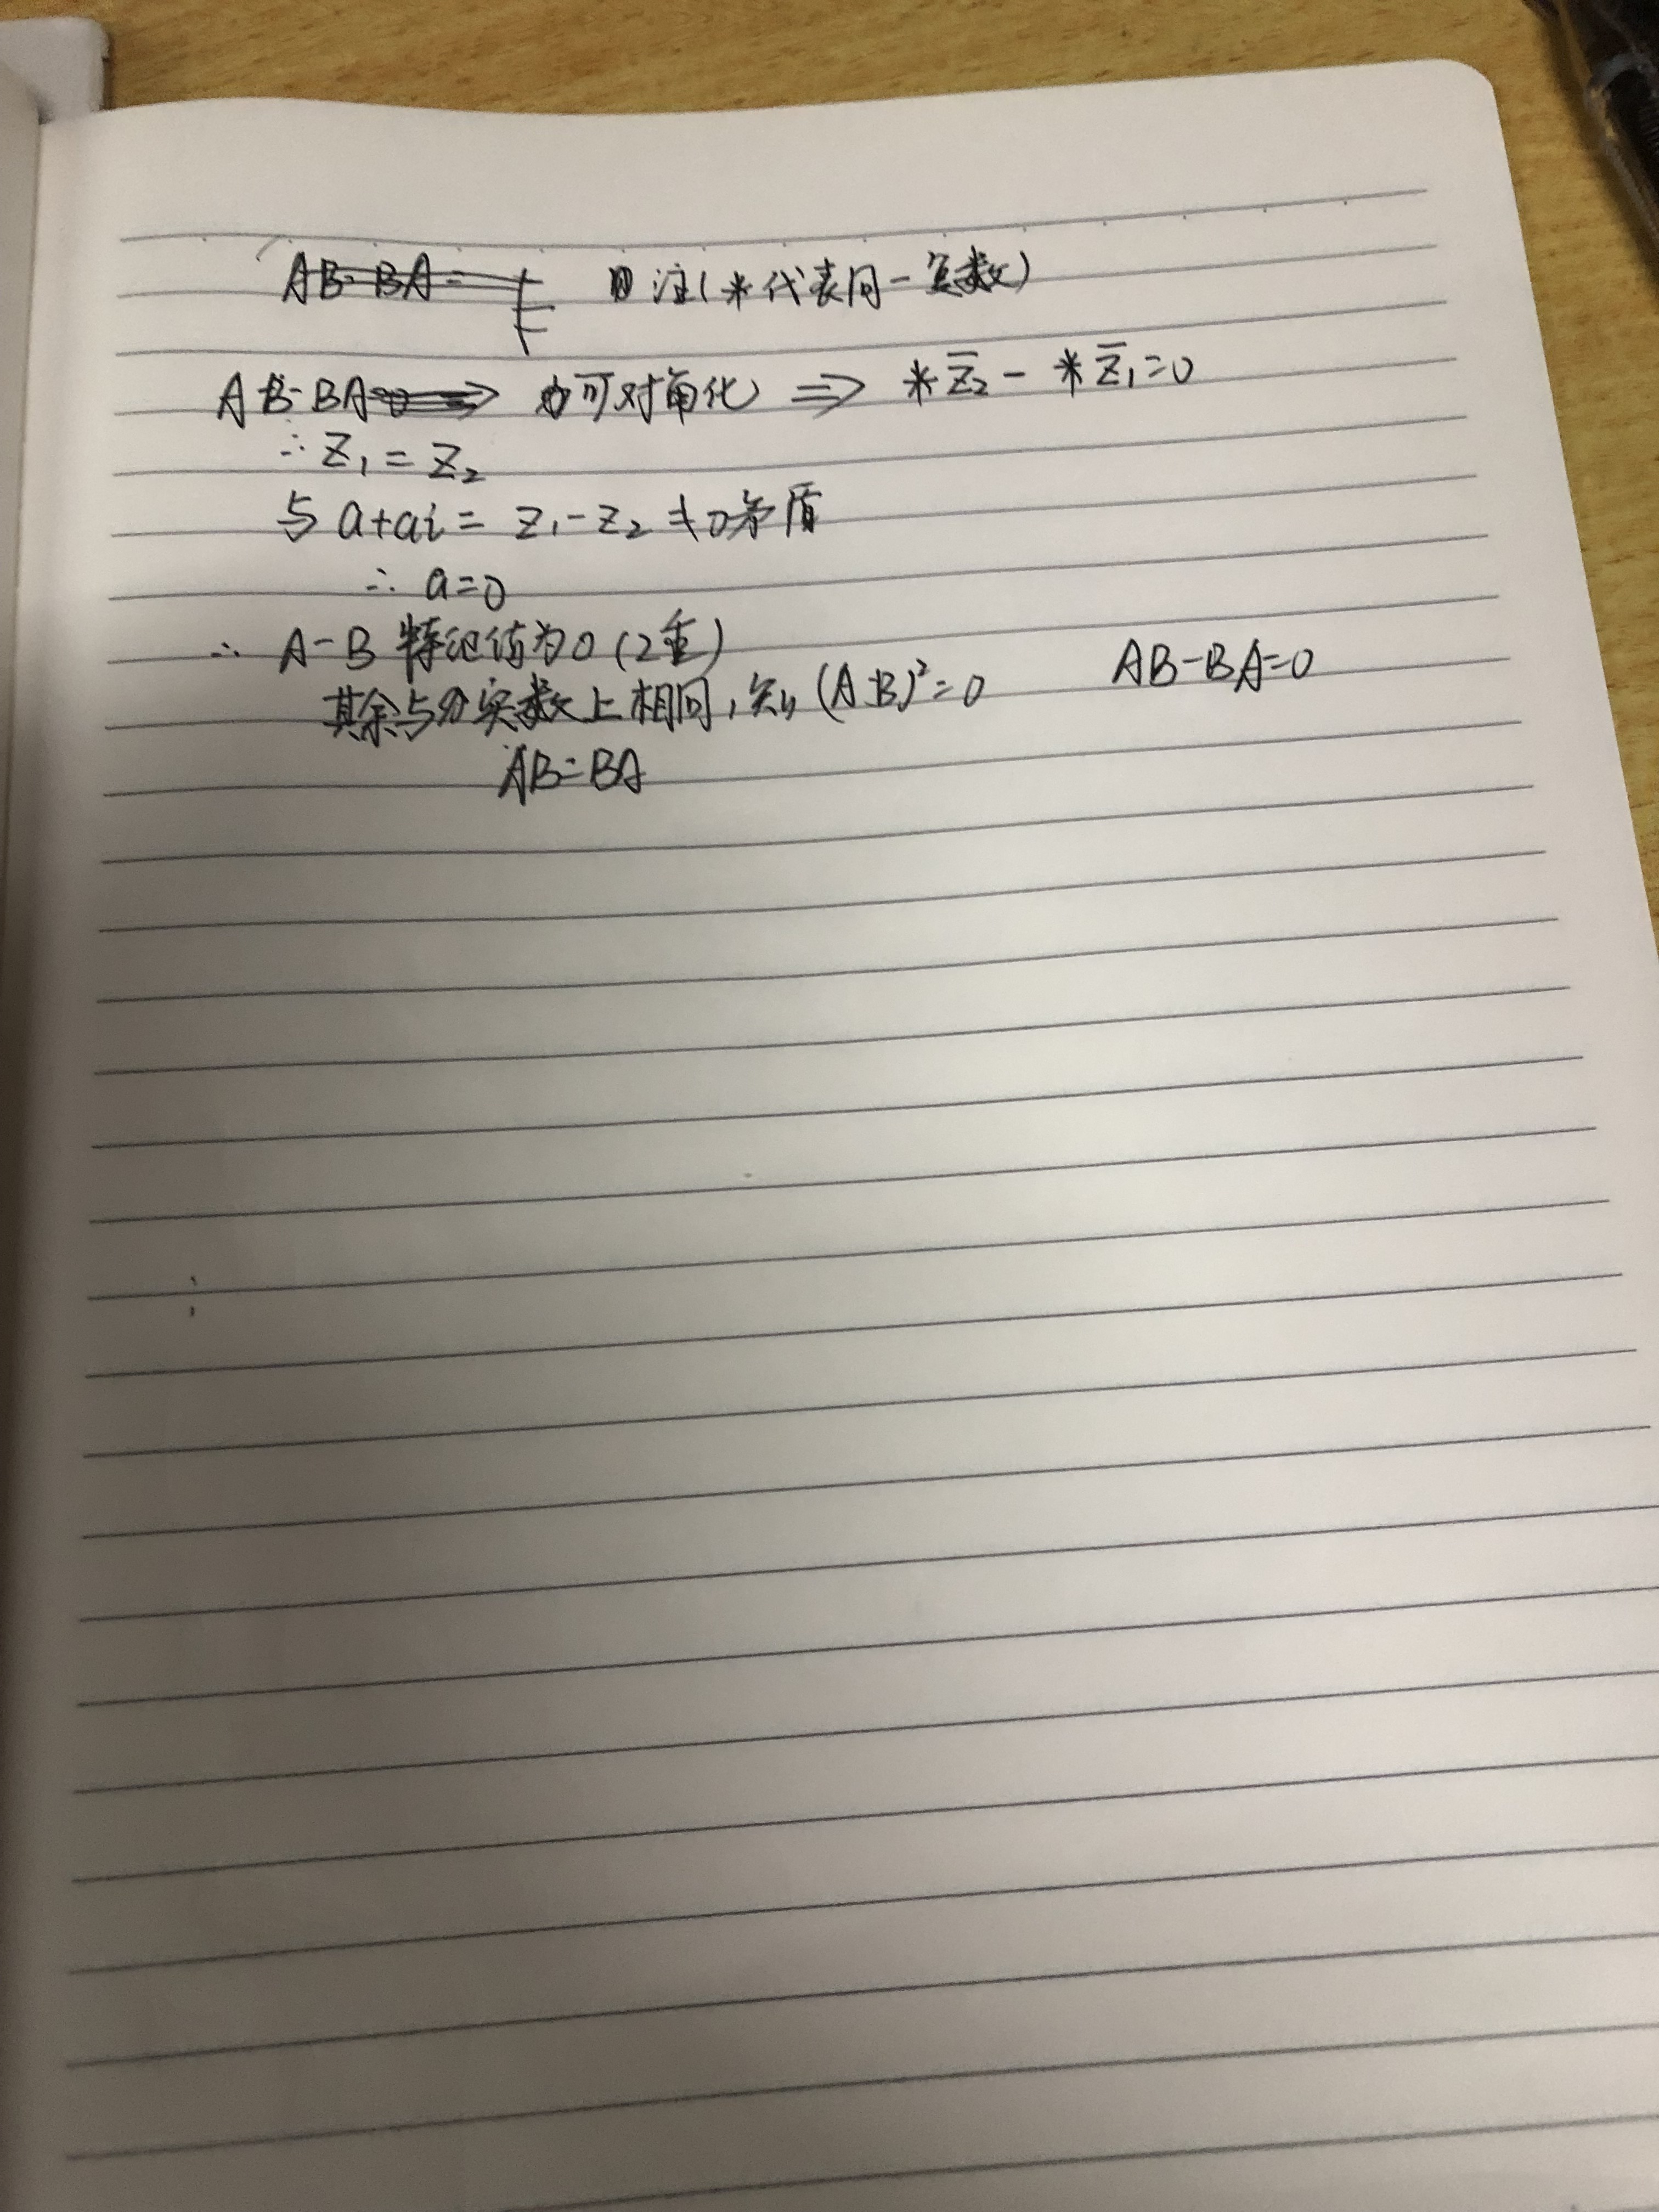 AB-BA= 注(*代表同一实数)
AB-BA 可对角化 ⇒ *z̄₂ - *z̄₁=0
∴ z₁ = z₂
与 a+ai = z₁-z₂ ≠0矛盾
∴ a=0
∴ A-B 特征值为0(2重)
其余与实数上相同, (A-B)²=0 AB-BA=0
AB=BA